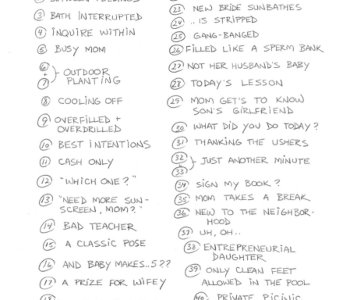 3 BATH INTERRUPTED
4 INQUIRE WITHIN
5 BUSY MOM
6
7 } OUTDOOR
PLANTING
8 COOLING OFF
9 OVERFILLED +
OVERDRILLED
10 BEST INTENTIONS
11 CASH ONLY
12 "WHICH ONE?"
13 "NEED MORE SUN-
SCREEN, MOM?"
14 BAD TEACHER
15 A CLASSIC POSE
16 AND BABY MAKES..5??
17 A PRIZE FOR WIFEY
23 NEW BRIDE SUNBATHES
24 ..IS STRIPPED
25 GANG-BANGED
26 FILLED LIKE A SPERM BANK
27 NOT HER HUSBAND'S BABY
28 TODAY'S LESSON
29 MOM GET'S TO KNOW
SON'S GIRLFRIEND
30 WHAT DID YOU DO TODAY?
31 THANKING THE USHERS
32
33 } JUST ANOTHER MINUTE
34 SIGN MY BOOK?
35 MOM TAKES A BREAK
36 NEW TO THE NEIGHBOR-
HOOD
37 UH, OH..
38 ENTREPRENEURIAL
DAUGHTER
39 ONLY CLEAN FEET
ALLOWED IN THE POOL
40 PRIVATE PICNIC